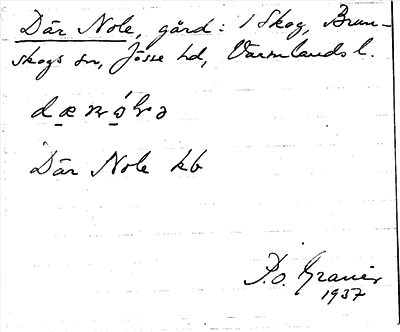 Där Nole, gård: 1 Skog, Brun-
skogs sn, Jösse hd, Värmlands l.
Där Nole kb
P.O. Graner
1937